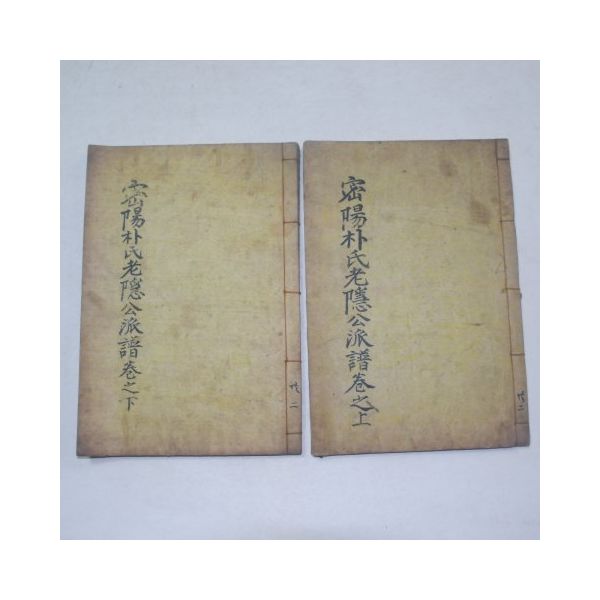 密陽朴氏老隱公派譜卷之下
共二
密陽朴氏老隱公派譜卷之上
共二